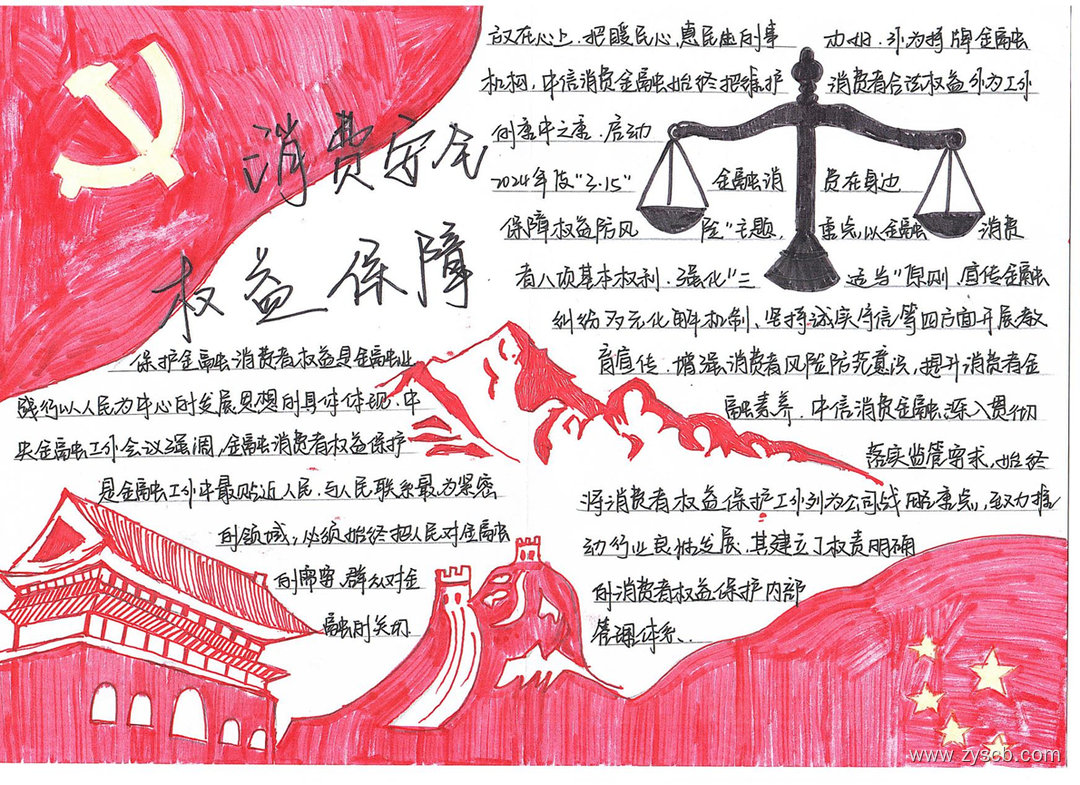 消费安全
权益保障
保护金融消费者权益是金融业
践行以人民为中心的发展思想的具体体现,中
央金融工作会议强调,金融消费者权益保护
是金融工作中最贴近人民、与人民联系最为紧密
的领域,必须始终把人民对金融
的需要、群众对金
融的关切
放在心上,把暖民心、惠民生的事 办好。作为持牌金融
机构,中信消费金融始终把维护 消费者合法权益作为工作
的重中之重,启动
2024年度"3.15" 金融消 费在身边
保障权益防风 险"主题,重点以金融 消费
者八项基本权利、强化"三 适当"原则、宣传金融
纠纷多元化解机制、坚持诚实守信等四方面开展教
育宣传,增强消费者风险防范意识,提升消费者金
融素养,中信消费金融深入贯彻
落实监管要求,始终
将消费者权益保护工作列为公司战略重点,致力推
动行业良性发展,其建立了权责明确
的消费者权益保护内部
管理体系.
www.zyscb.com